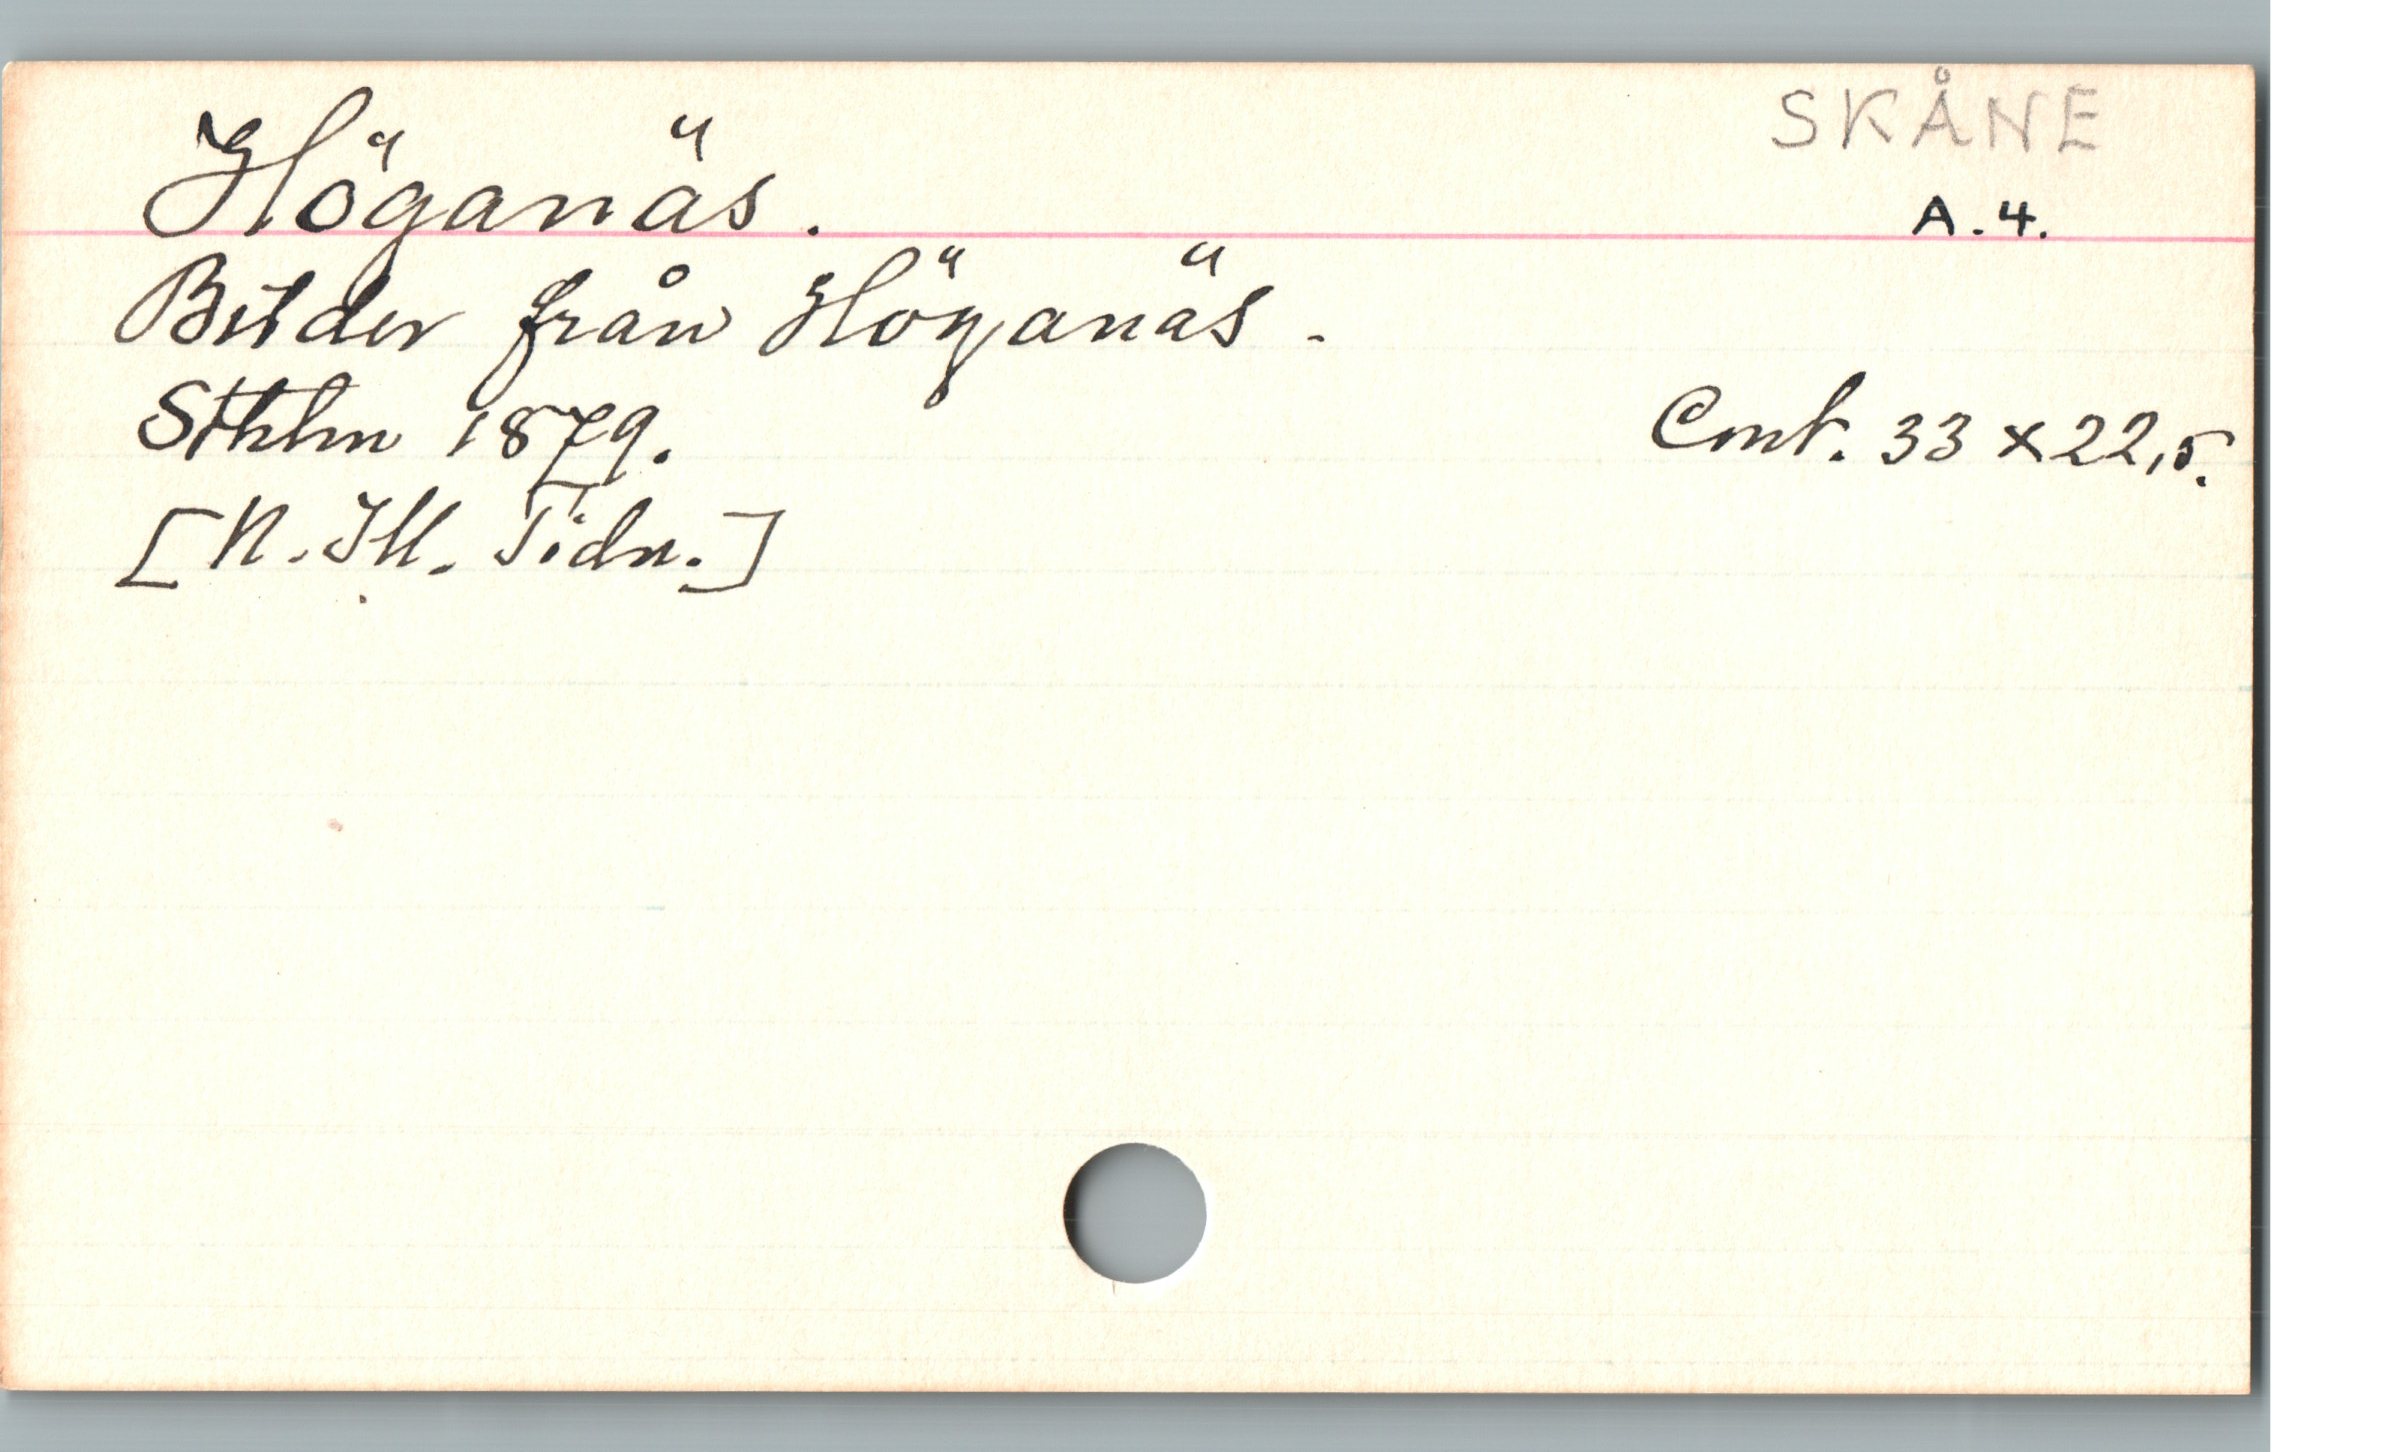 SKÅNE
Höganäs. A.4.
Bilder från Höganäs.
Sthlm 1879. Cmt. 33 x 22,5.
[N. Ill. Tidn.]